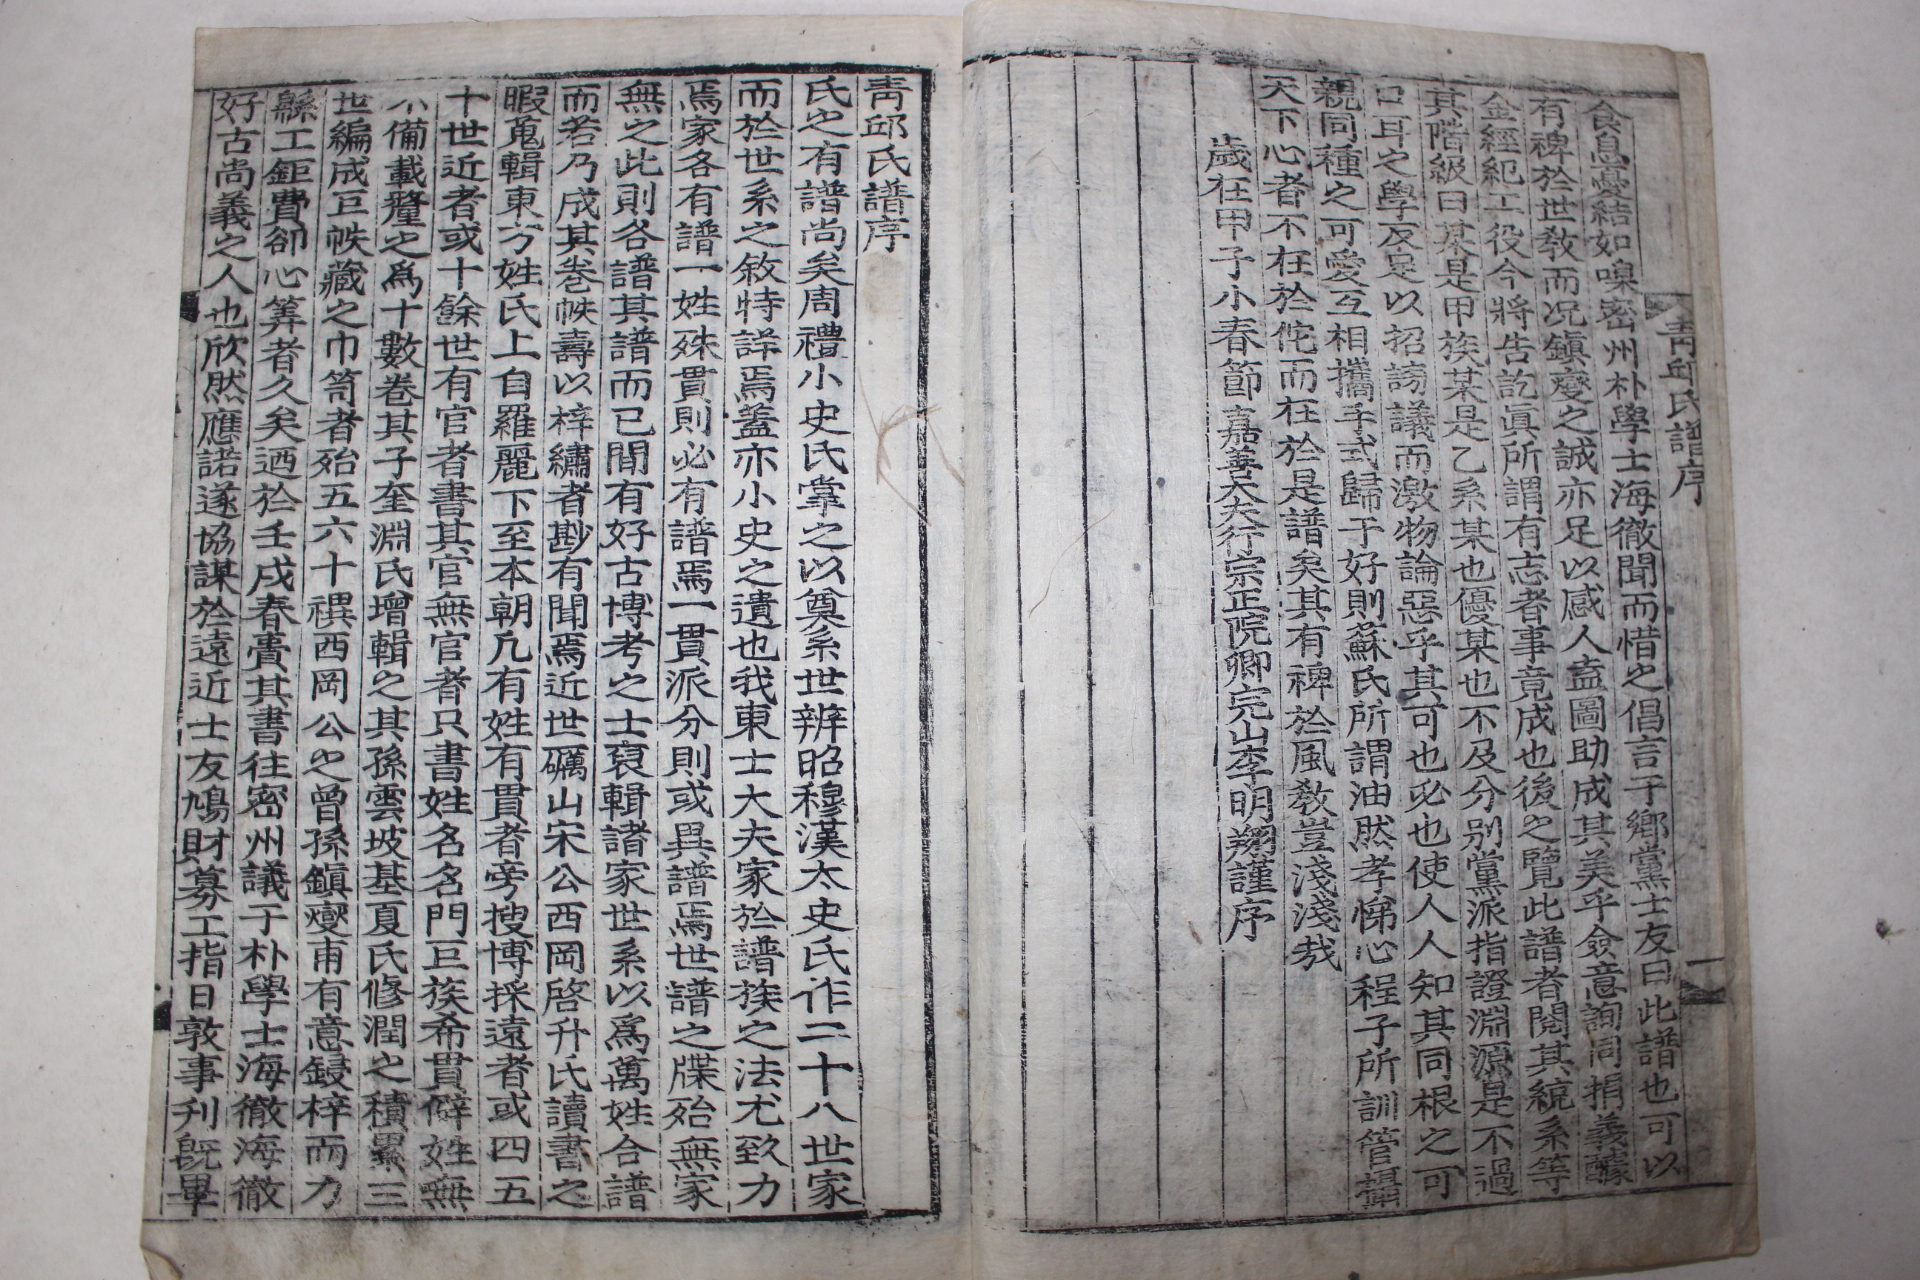 青邱氏譜序
食息憂結如嗅密州朴學士海徹聞而惜之倡言于鄉黨士友曰此譜也可以
有裨於世敎而况鎭燮之誠亦足以感人盍圖助成其美乎僉意詢同捐義醵
金經紀工役今將告訖眞所謂有志者事竟成也後之覽此譜者閱其統系等
其階級曰某是甲族某是乙系某也優某也不及分別黨派指證淵源是不過
口耳之學反足以招謗議而激物論惡乎其可也必也使人人知其同根之可
親同種之可愛互相攜手式歸于好則蘇氏所謂油然孝悌心程子所訓管攝
天下心者不在於佗而在於是譜矣其有裨於風敎豈淺淺哉
歲在甲子小春節嘉善大夫行宗正院卿完山李明翔謹序
靑邱氏譜序
氏之有譜尚矣周禮小史氏掌之以奠系世辨昭穆漢太史氏作二十八世家
而於世系之敘特詳焉蓋亦小史之遺也我東士大夫家於譜族之法尤致力
焉家各有譜一姓殊貫則必有譜焉一貫派分則或異譜焉世譜之牒殆無家
無之此則各譜其譜而已間有好古博考之士裒輯諸家世系以爲萬姓合譜
而若乃成其卷帙壽以梓繡者尠有聞焉近世礪山宋公西岡啓升氏讀書之
暇蒐輯東方姓氏上自羅麗下至本朝凡有姓有貫者旁搜博採遠者或四五
十世近者或十餘世有官者書其官無官者只書姓名名門巨族希貫僻姓無
不備載釐之爲十數卷其子奎淵氏增輯之其孫雲坡基夏氏修潤之積累三
世編成巨帙藏之巾笥者殆五六十禩西岡公之曾孫鎭燮甫有意鋟梓而力
緜工鉅費卻心筭者久矣迺於壬戌春賷其書往密州議于朴學士海徹海徹
好古尚義之人也欣然應諾遂協謀於遠近士友鳩財募工指日敦事刋旣畢